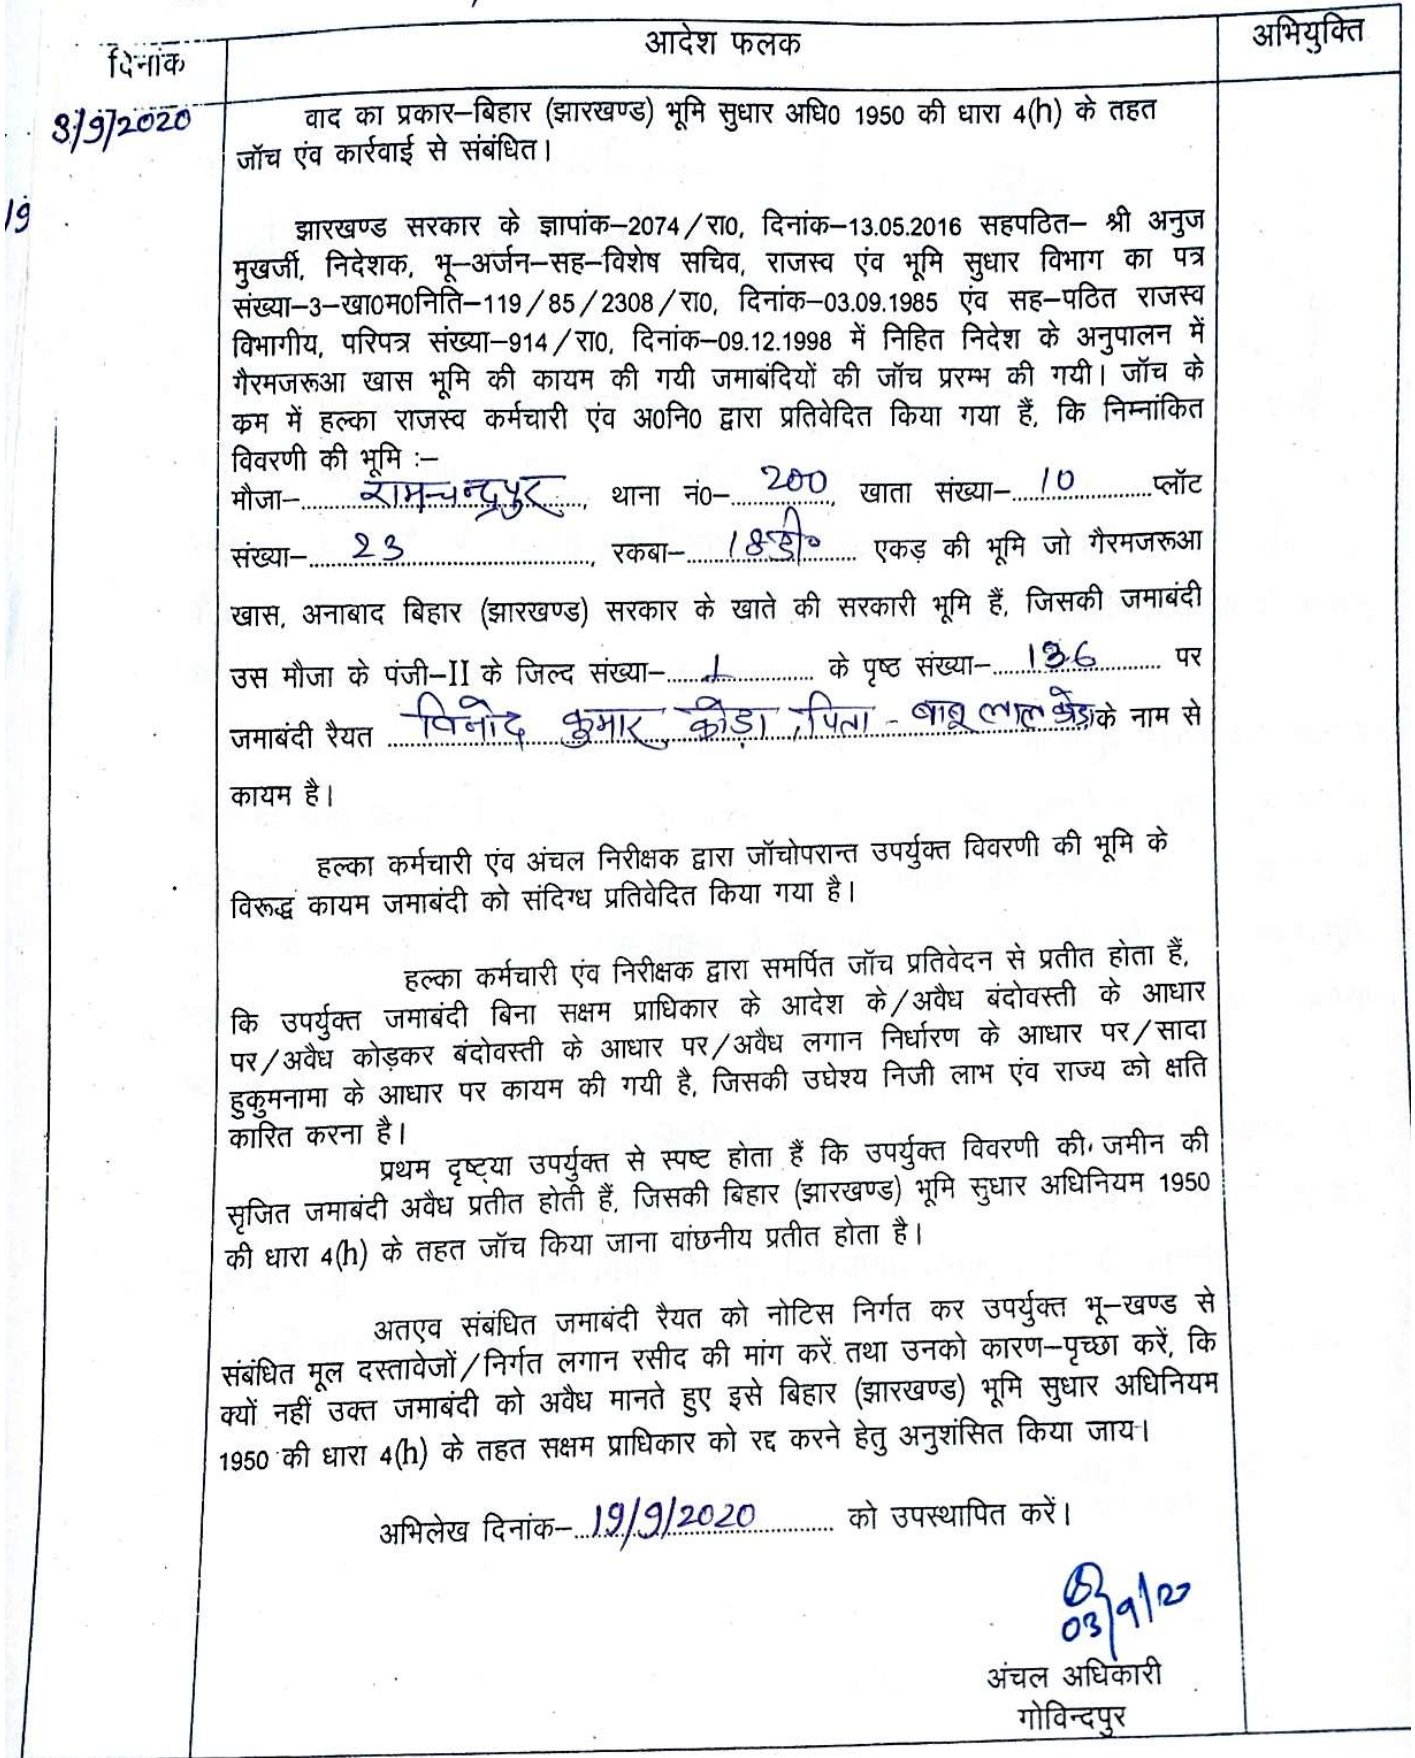 दिनांक
आदेश फलक
अभियुक्ति
3/9/2020
वाद का प्रकार–बिहार (झारखण्ड) भूमि सुधार अधि0 1950 की धारा 4(h) के तहत
जॉच एंव कार्रवाई से संबंधित।
19
झारखण्ड सरकार के ज्ञापांक–2074/रा0, दिनांक–13.05.2016 सहपठित– श्री अनुज
मुखर्जी, निदेशक, भू–अर्जन–सह–विशेष सचिव, राजस्व एंव भूमि सुधार विभाग का पत्र
संख्या–3–खा0म0निति–119/85/2308/रा0, दिनांक–03.09.1985 एंव सह–पठित राजस्व
विभागीय, परिपत्र संख्या–914/रा0, दिनांक–09.12.1998 में निहित निदेश के अनुपालन में
गैरमजरूआ खास भूमि की कायम की गयी जमाबंदियों की जॉच प्ररम्भ की गयी। जॉच के
कम में हल्का राजस्व कर्मचारी एंव अ0नि0 द्वारा प्रतिवेदित किया गया हैं, कि निम्नांकित
विवरणी की भूमि :–
मौजा–रामचन्द्रपुर, थाना नं0–200, खाता संख्या–10 प्लॉट
संख्या–23, रकबा–18डी० एकड़ की भूमि जो गैरमजरूआ
खास, अनाबाद बिहार (झारखण्ड) सरकार के खाते की सरकारी भूमि हैं, जिसकी जमाबंदी
उस मौजा के पंजी–II के जिल्द संख्या–1 के पृष्ठ संख्या–136 पर
जमाबंदी रैयत विनोद कुमार कोड़ा, पिता - बाबू लाल कोड़ा के नाम से
कायम है।
हल्का कर्मचारी एंव अंचल निरीक्षक द्वारा जॉचोपरान्त उपर्युक्त विवरणी की भूमि के
विरूद्ध कायम जमाबंदी को संदिग्ध प्रतिवेदित किया गया है।
हल्का कर्मचारी एंव निरीक्षक द्वारा समर्पित जॉच प्रतिवेदन से प्रतीत होता हैं,
कि उपर्युक्त जमाबंदी बिना सक्षम प्राधिकार के आदेश के/अवैध बंदोवस्ती के आधार
पर/अवैध कोड़कर बंदोवस्ती के आधार पर/अवैध लगान निर्धारण के आधार पर/सादा
हुकुमनामा के आधार पर कायम की गयी है, जिसकी उघेश्य निजी लाभ एंव राज्य को क्षति
कारित करना है।
प्रथम दृष्ट्या उपर्युक्त से स्पष्ट होता हैं कि उपर्युक्त विवरणी की जमीन की
सृजित जमाबंदी अवैध प्रतीत होती हैं, जिसकी बिहार (झारखण्ड) भूमि सुधार अधिनियम 1950
की धारा 4(h) के तहत जॉच किया जाना वांछनीय प्रतीत होता है।
अतएव संबंधित जमाबंदी रैयत को नोटिस निर्गत कर उपर्युक्त भू–खण्ड से
संबंधित मूल दस्तावेजों/निर्गत लगान रसीद की मांग करें तथा उनको कारण–पृच्छा करें, कि
क्यों नहीं उक्त जमाबंदी को अवैध मानते हुए इसे बिहार (झारखण्ड) भूमि सुधार अधिनियम
1950 की धारा 4(h) के तहत सक्षम प्राधिकार को रद्द करने हेतु अनुशंसित किया जाय।
अभिलेख दिनांक–19/9/2020 को उपस्थापित करें।
03/9/20
अंचल अधिकारी
गोविन्दपुर